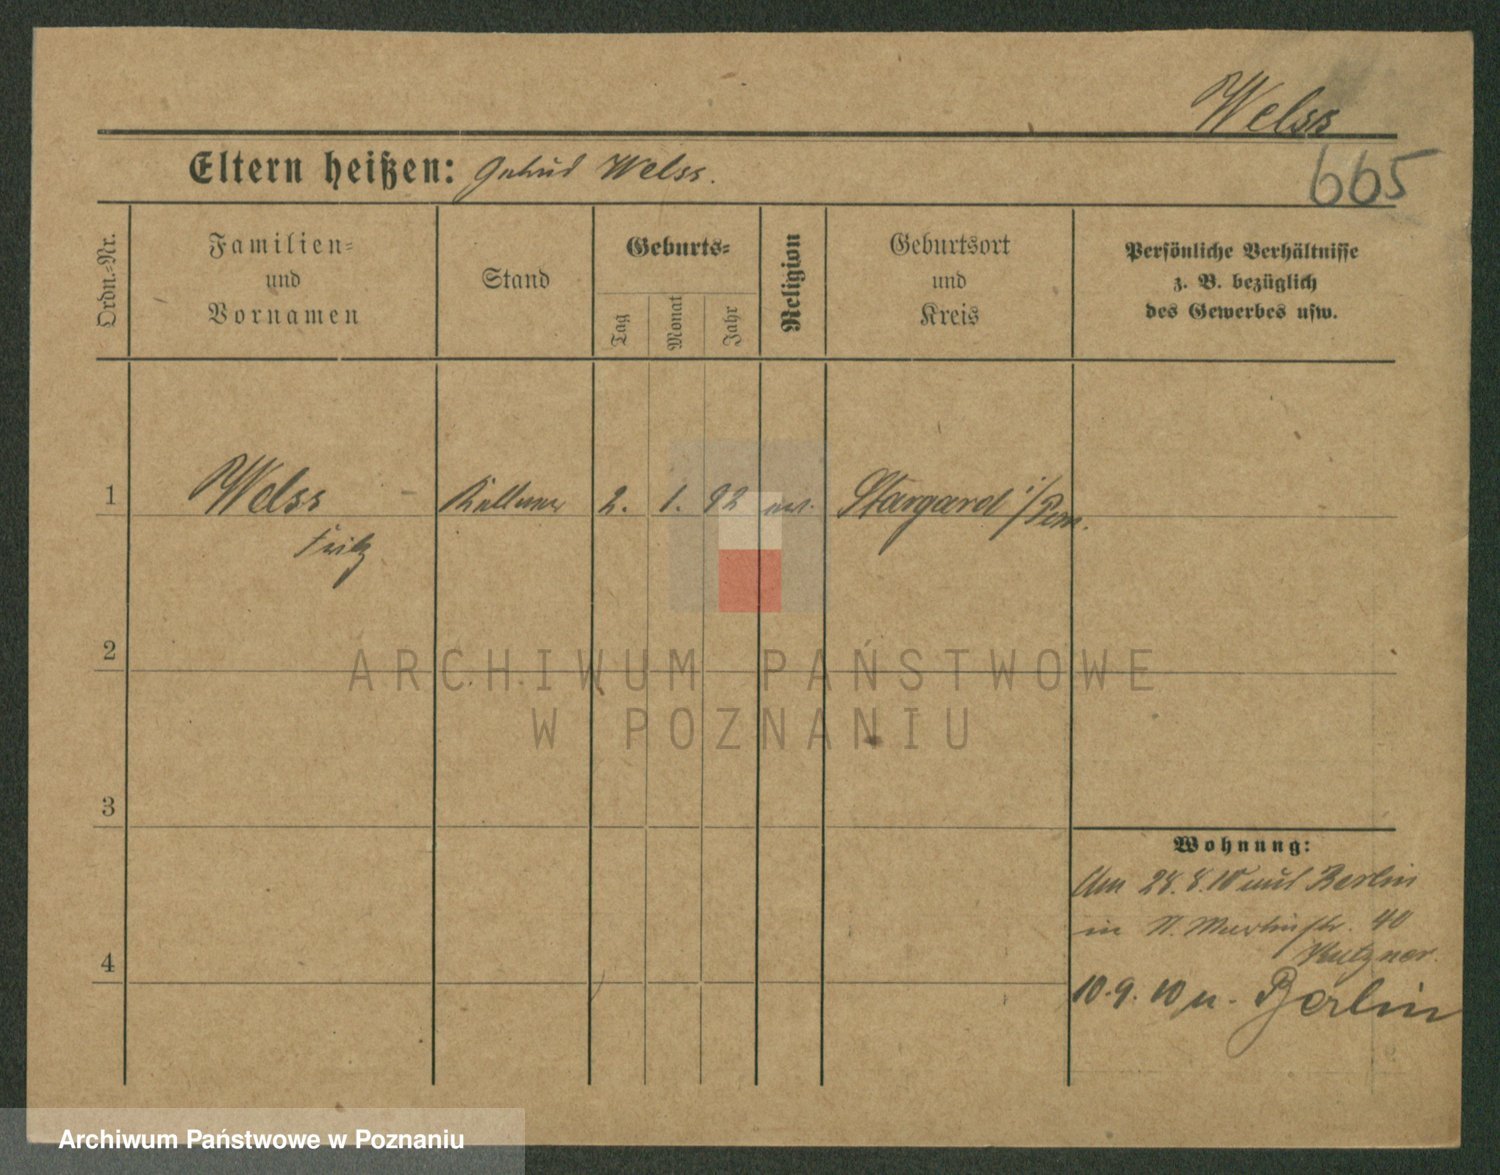 Welss
665
Eltern heißen: Gertrud Welss.
Ordn.-Nr.
Familien-
und
Vornamen
Stand
Geburts-
Tag
Monat
Jahr
Religion
Geburtsort
und
Kreis
Persönliche Verhältnisse
z. B. bezüglich
des Gewerbes usw.
1 Welss Kellner 2. 1. 92 ev. Stargard i/Pom.
Fritz
2
ARCHIWUM PAŃSTWOWE
W POZNANIU
3
Wohnung:
Am 28. 8. 10 aus Berlin
in St. Martinstr. 40
4
10. 9. 10 n. Berlin
Archiwum Państwowe w Poznaniu